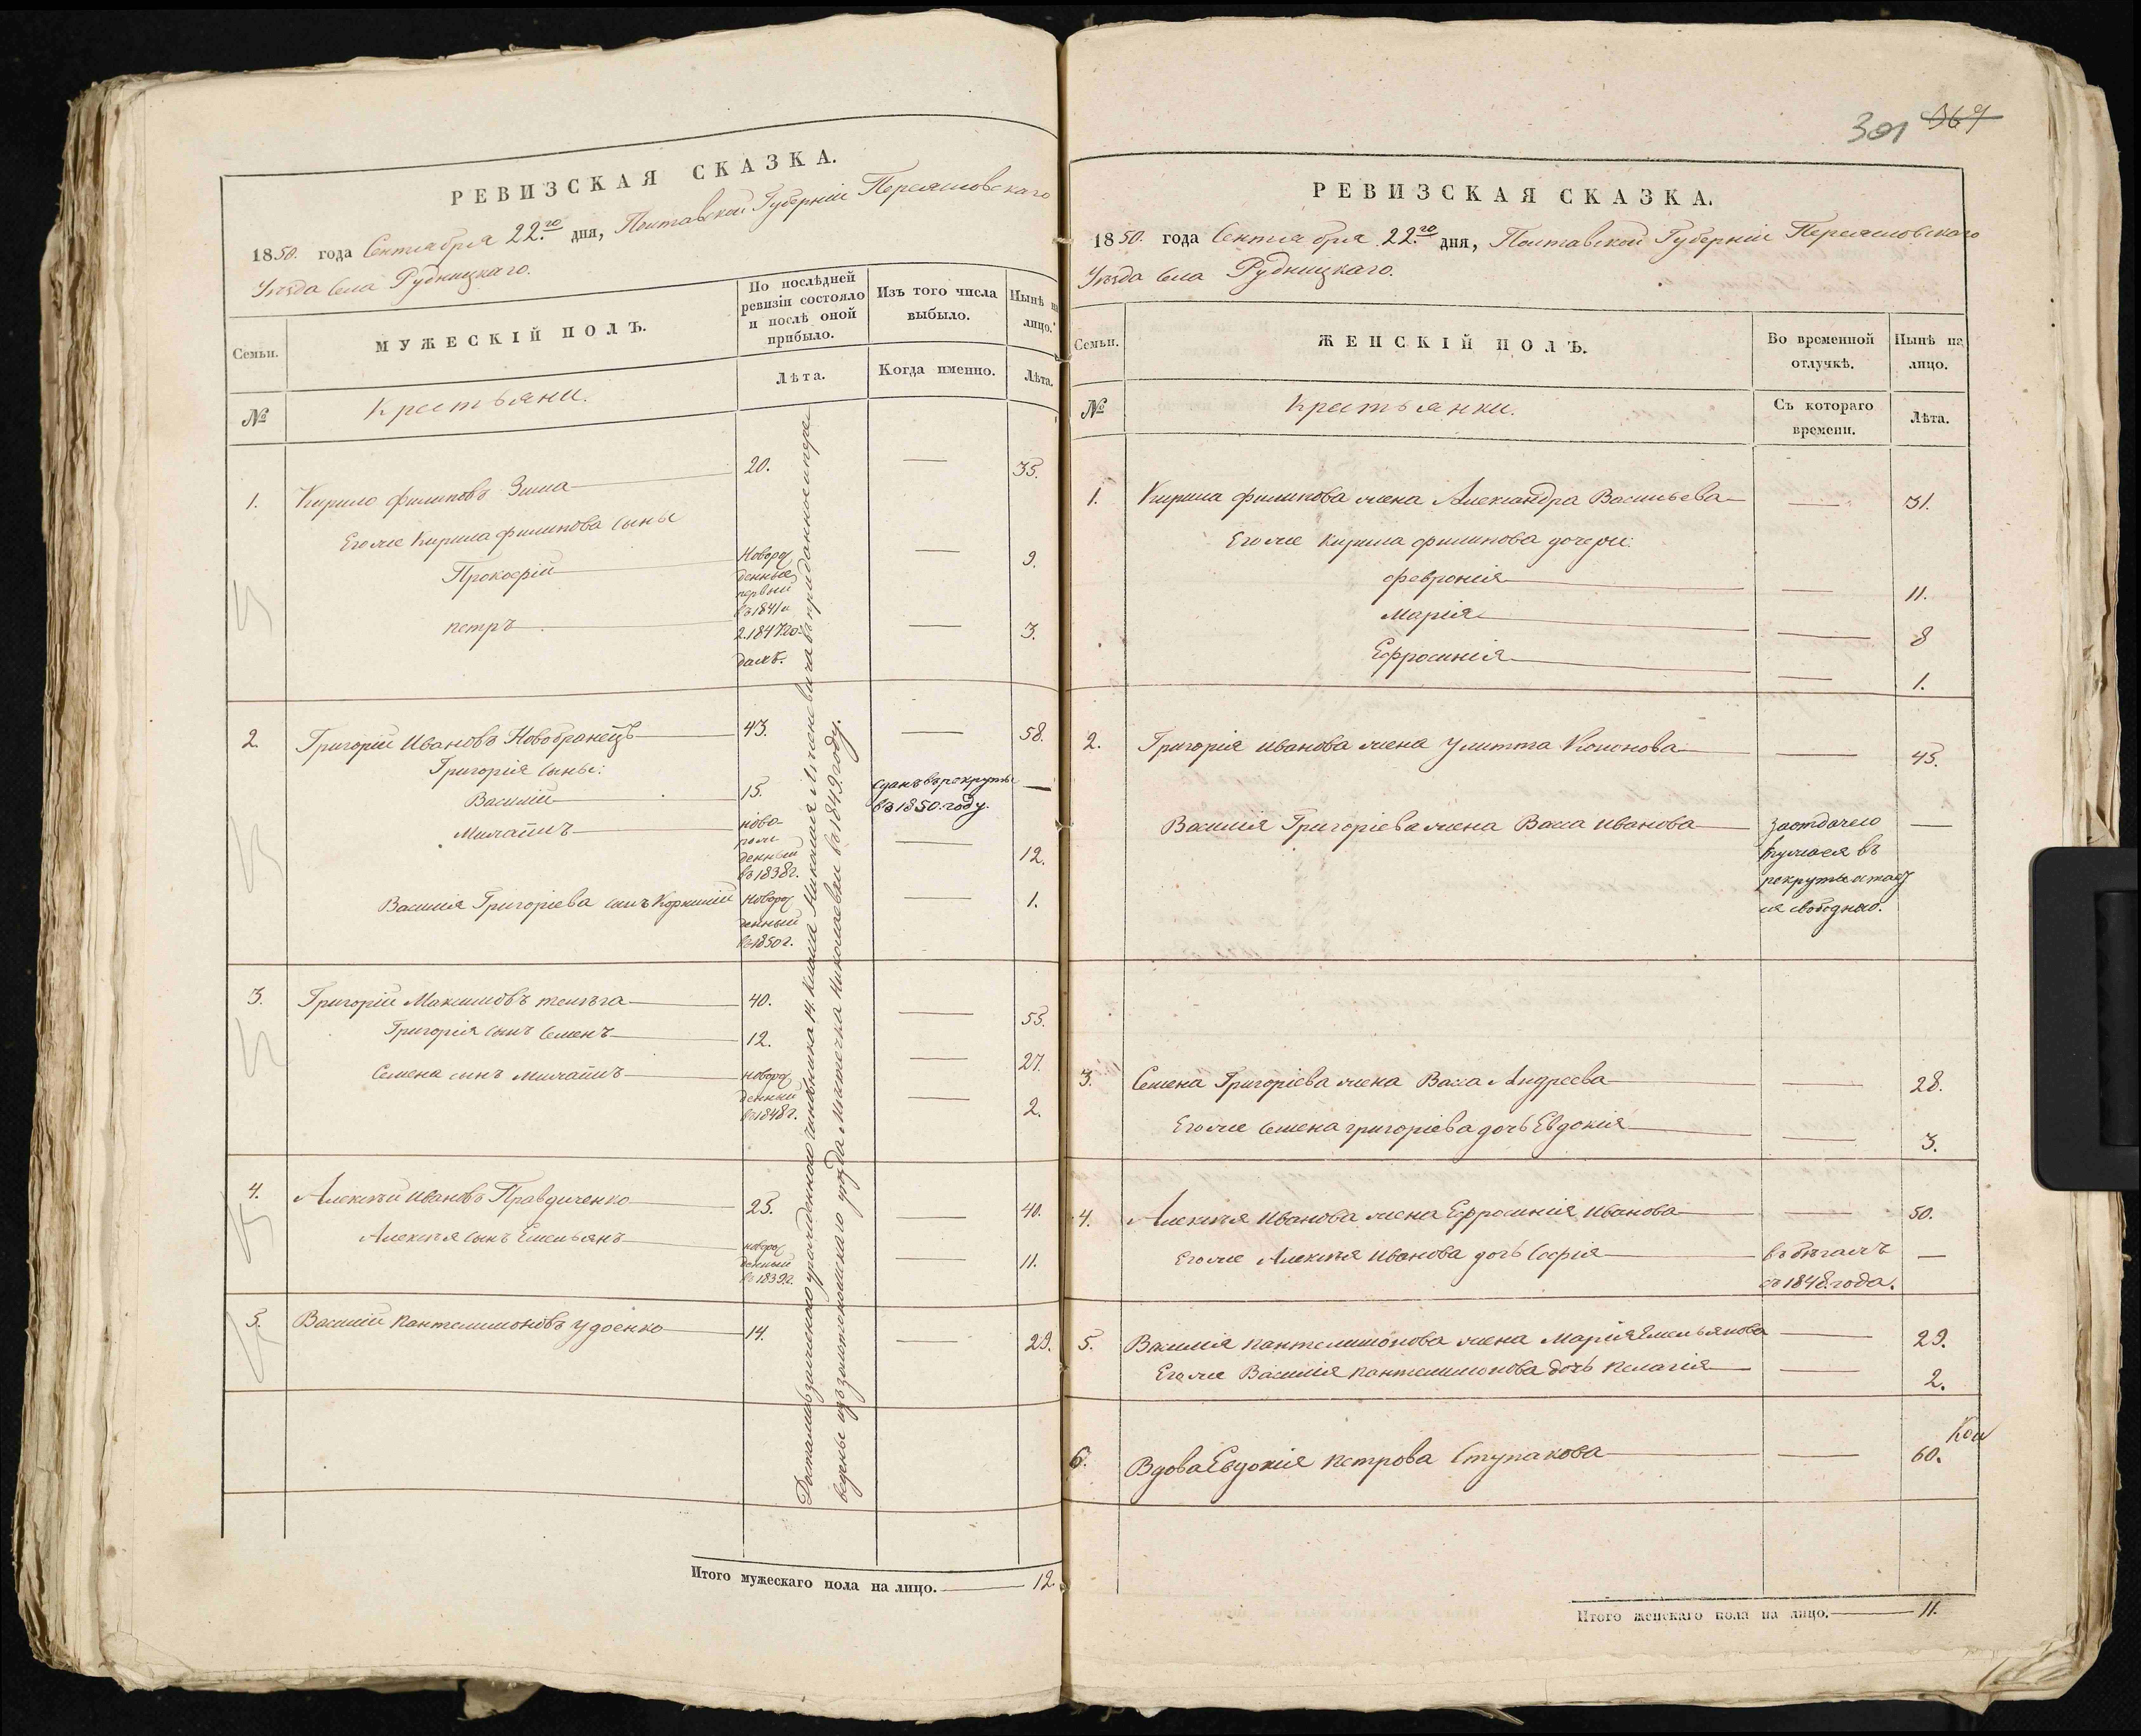 РЕВИЗСКАЯ СКАЗКА.
1850. года Сентября 22.го дня, Полтавской Губерніи Переяславскаго
Уезда Села Рудницкаго.
Семьи.
МУЖЕСКІЙ ПОЛЪ.
По послѣдней
ревизіи состояло
и послѣ оной
прибыло.
Изъ того числа
выбыло.
Нынѣ на
лицо.
Лѣта.
Когда именно.
Лѣта.
№
Крестьяни.
1. Кирило Филиповъ Зима 20. — 35.
Его же Кирила Филипова сыны
Прокофій Новорож
денные
первый
въ 1841 и
— 9.
Петръ 2. 1847 го
дахъ.
— 3.
2. Григорій Ивановъ Новобранецъ 43. — 58.
Григорія сыны:
Василій 15. сданъ въ рекруты
въ 1850. году. —
Михаилъ ново-
рож
денный
въ 1838 г.
— 12.
Василія Григоріева сынъ Корнилій новорож
денный
въ 1850 г.
— 1.
3. Григорій Максимовъ телѣга 40. — 55.
Григорія сынъ Семенъ 12. — 27.
Семена сынъ Михаилъ новорож
денный
въ 1848 г.
— 2.
4. Алексѣй Ивановъ Правдиченко 25. — 40.
Алексѣя сынъ Емельянъ новорож
денный
въ 1839 г.
— 11.
5. Василій Пантелимоновъ Удоенко 14. — 29.
Достались въ приданное
въ 1849. году.
Итого мужескаго пола на лицо. — 12.
301 367
РЕВИЗСКАЯ СКАЗКА.
1850. года Сентября 22.го дня, Полтавской Губерніи Переясловскаго
Уѣзда Села Рудницкаго.
Семьи.
ЖЕНСКІЙ ПОЛЪ.
Во временной
отлучкѣ.
Нынѣ на
лицо.
№
Крестьянки.
Съ котораго
времени.
Лѣта.
1. Кирила Филипова жена Александра Васильева — 31.
Его же Кирила Филипова дочери:
Февронія — 11.
Марія — 8
Ефросинія — 1.
2. Григорія Иванова жена Улитта Кононова — 45.
Василія Григоріева жена Васа Иванова за отдачею
мужа ея въ
рекруты
свободною. —
3. Семена Григоріева жена Васа Андреева — 28.
Его же Семена Григоріева дочь Евдокія — 3.
4. Алексѣя Иванова жена Ефросинія Иванова — 50.
Его же Алексѣя Иванова дочь Софія въ бѣгахъ
съ 1848. года. —
5. Василія Пантелимонова жена Марія Емельянова — 29.
Его же Василія Пантелимонова дочь Пелагія — 2.
6. Вдова Евдокія Петрова Ступакова — 60.
Итого женскаго пола на лицо. — 11.